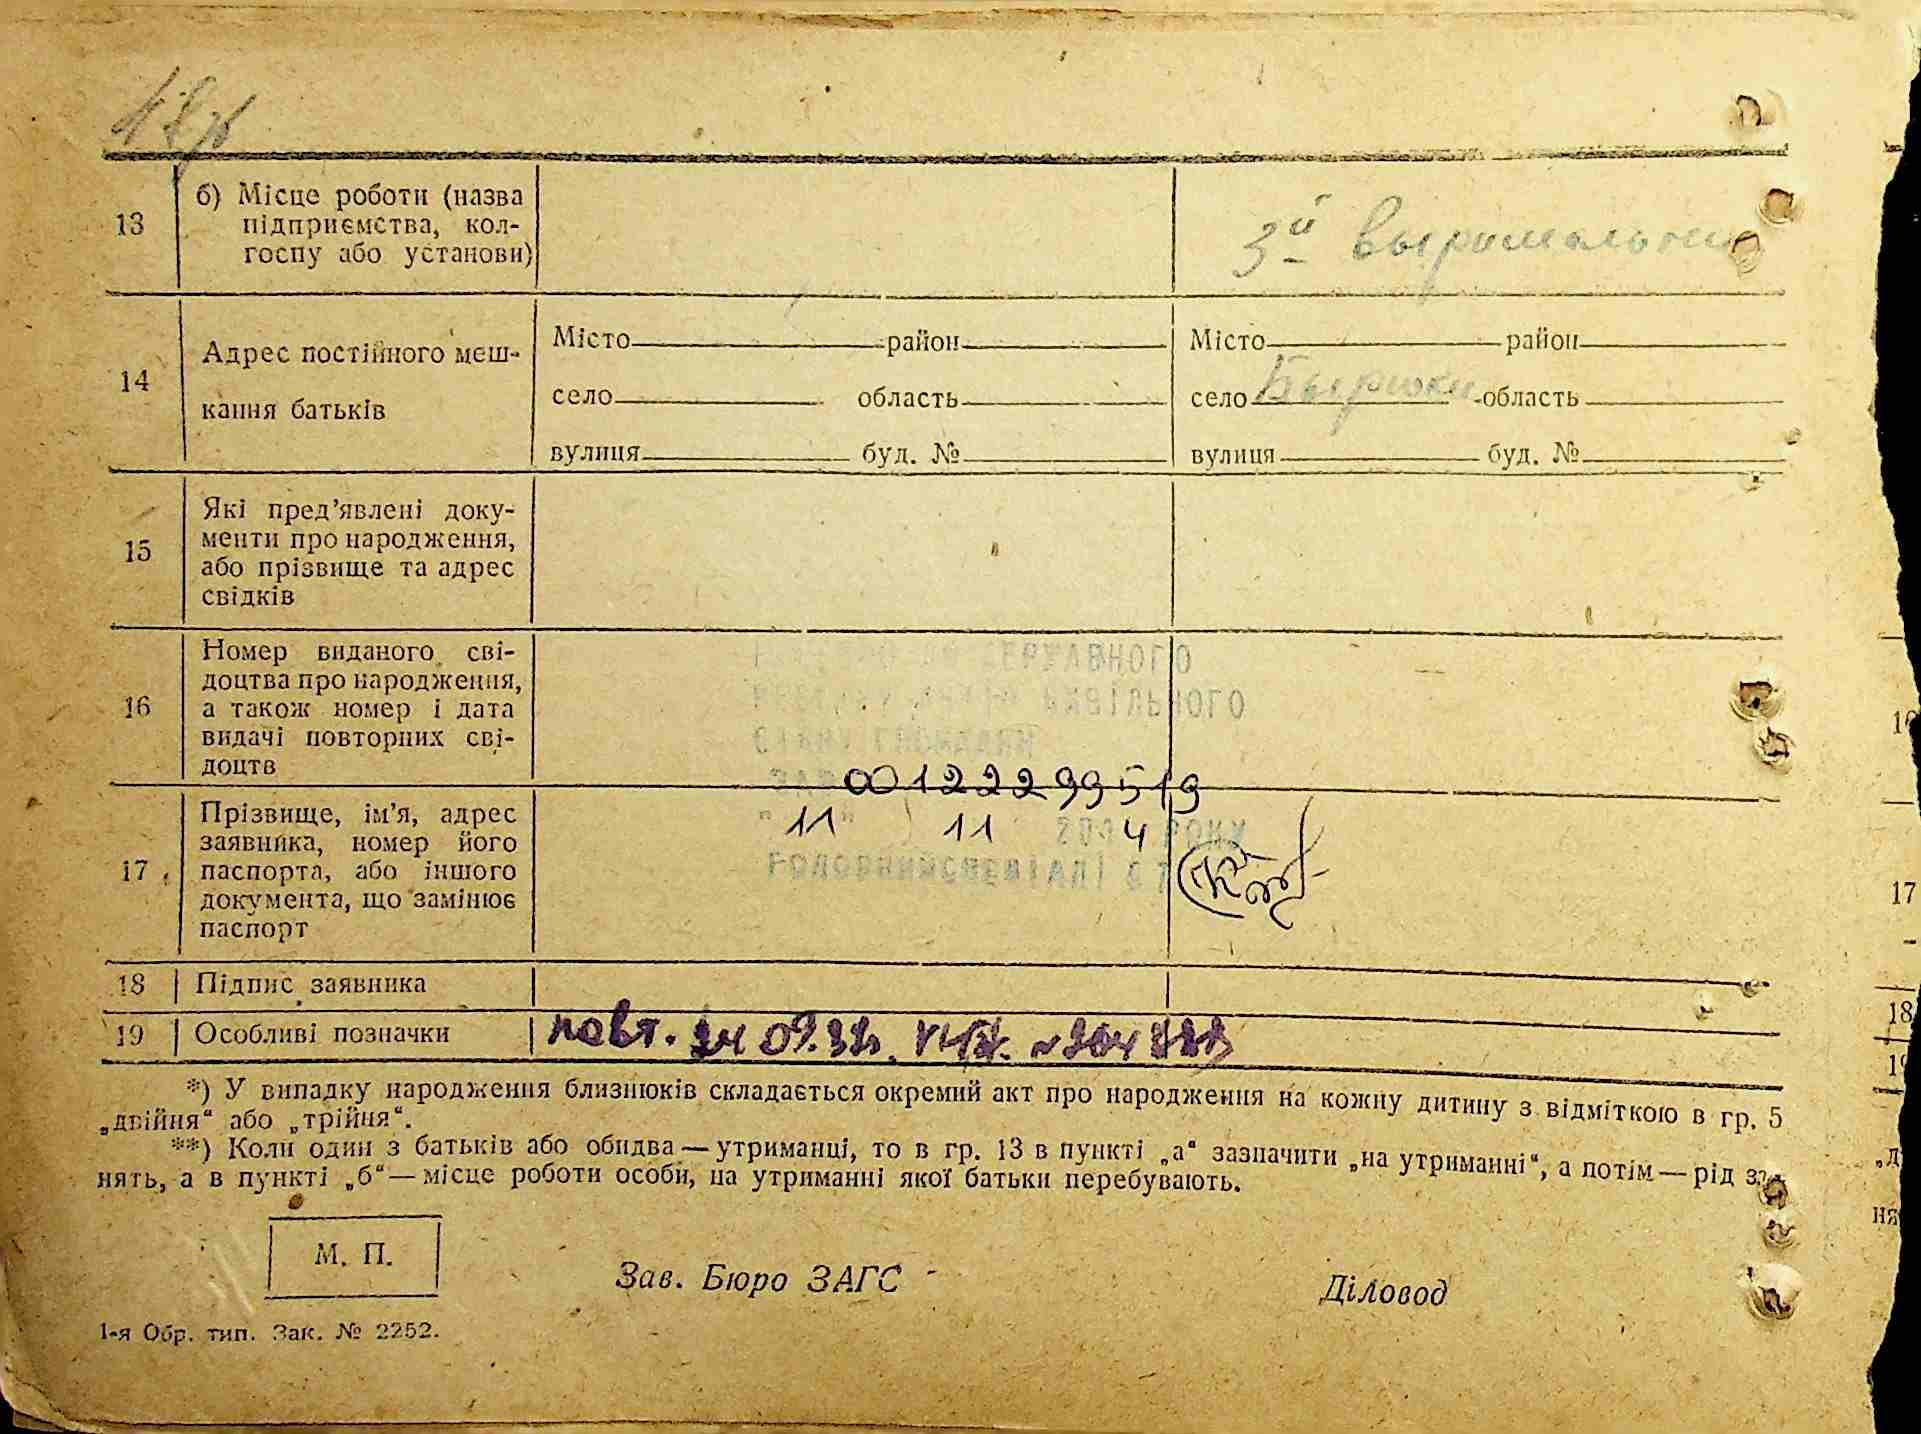 13
б) Місце роботи (назва
підприємства, кол-
госпу або установи)
3й
14
Адрес постійного меш-
кання батьків
Місто район
село область
вулиця буд. №
Місто район
село область
вулиця буд. №
15
Які пред’явлені доку-
менти про народження,
або прізвище та адрес
свідків
16
Номер виданого сві-
доцтва про народження,
а також номер і дата
видачі повторних сві-
доцтв
ДЕРЖАВНОГО
ЦИВІЛЬНОГО
СТАНУ ГРОМАДЯН
00122299519
17
Прізвище, ім’я, адрес
заявника, номер його
паспорта, або іншого
документа, що замінює
паспорт
"11" 11 2004 РОКУ
ГОЛОВНИЙ СПЕЦІАЛІСТ
18
Підпис заявника
19
Особливі позначки
повт.
*) У випадку народження близнюків складається окремий акт про народження на кожну дитину з відміткою в гр. 5
„двійня“ або „трійня“.
**) Коли один з батьків або обидва — утриманці, то в гр. 13 в пункті „а“ зазначити „на утриманні“, а потім — рід за-
нять, а в пункті „б“ — місце роботи особи, на утриманні якої батьки перебувають.
М. П.
Зав. Бюро ЗАГС
Діловод
1-я Обр. тип. Зак. № 2252.
17
18